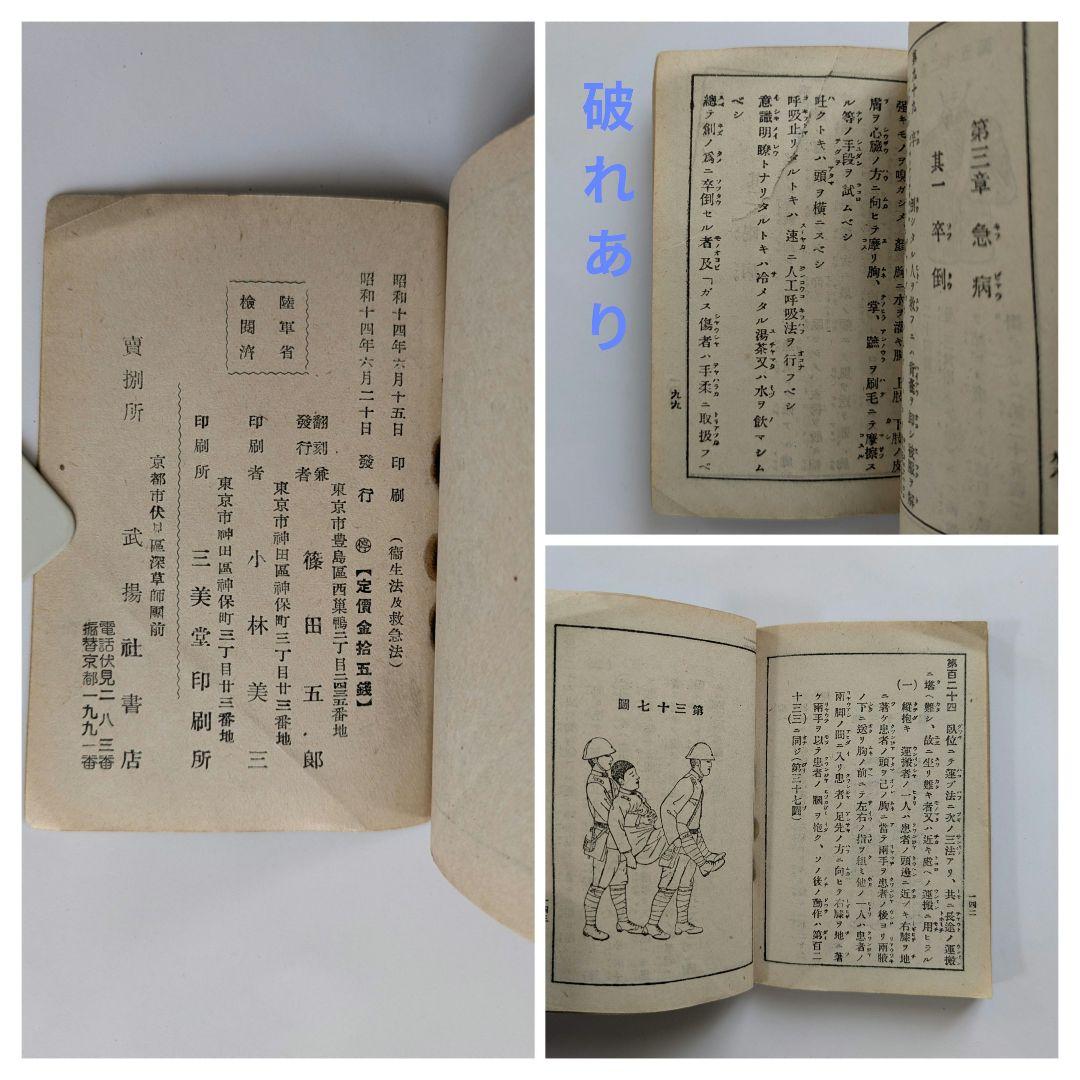 昭和十四年六月十五日 印刷 (衞生法及救急法)
昭和十四年六月二十日 發行 停 【定價金拾五錢】
陸軍省
檢閲濟
東京市豊島區西巣鴨二丁目二四三五番地
翻刻兼
發行者 篠田五郎
東京市神田區神保町三丁目廿三番地
印刷者 小林美三
東京市神田區神保町三丁目廿三番地
印刷所 三美堂印刷所
京都市伏見區深草師團前
賣捌所 武揚社書店
電話伏見二八三番
振替京都一九九一番
破れあり
第三章 急病
其一 卒倒
膚ヲ心臟ノ方ニ向ヒテ摩リ胸、掌、蹠ヲ刷毛ニテ摩擦ス
ル等ノ手段ヲ試ムベシ
吐クトキハ頭ヲ横ニスベシ
呼吸止リタルトキハ速ニ人工呼吸法ヲ行フベシ
意識明瞭トナリタルトキハ冷メタル湯茶又ハ水ヲ飲マシム
ベシ
總テ創ノ爲ニ卒倒セル者及「ガス傷者ハ手柔ニ取扱フベ
九九
第百二十四 臥位ニテ運ブ法ニ次ノ三法アリ、共ニ長途ノ運搬
ニ堪ヘ難シ、故ニ坐リ難キ者又ハ近キ處ヘノ運搬ニ用ヒラル
(一) 縱抱キ 運搬者ノ一人ハ患者ノ頭邊ニ近ヅキ右膝ヲ地
ニ著ケ患者ノ頭ヲ己ノ胸ニ當テ兩手ヲ患者ノ後ヨリ兩腋
ノ下ニ送リ胸ノ前ニテ左右ノ指ヲ組ミ他ノ一人ハ患者ノ
兩脚ノ間ニ入リ患者ノ足先ノ方ニ向ヒテ右膝ヲ地ニ著
ケ兩手ヲ以テ患者ノ膕ヲ抱ク、ソノ後ノ動作ハ第百二
十三(三)ニ同ジ(第三十七圖)
一四二
第三十七圖